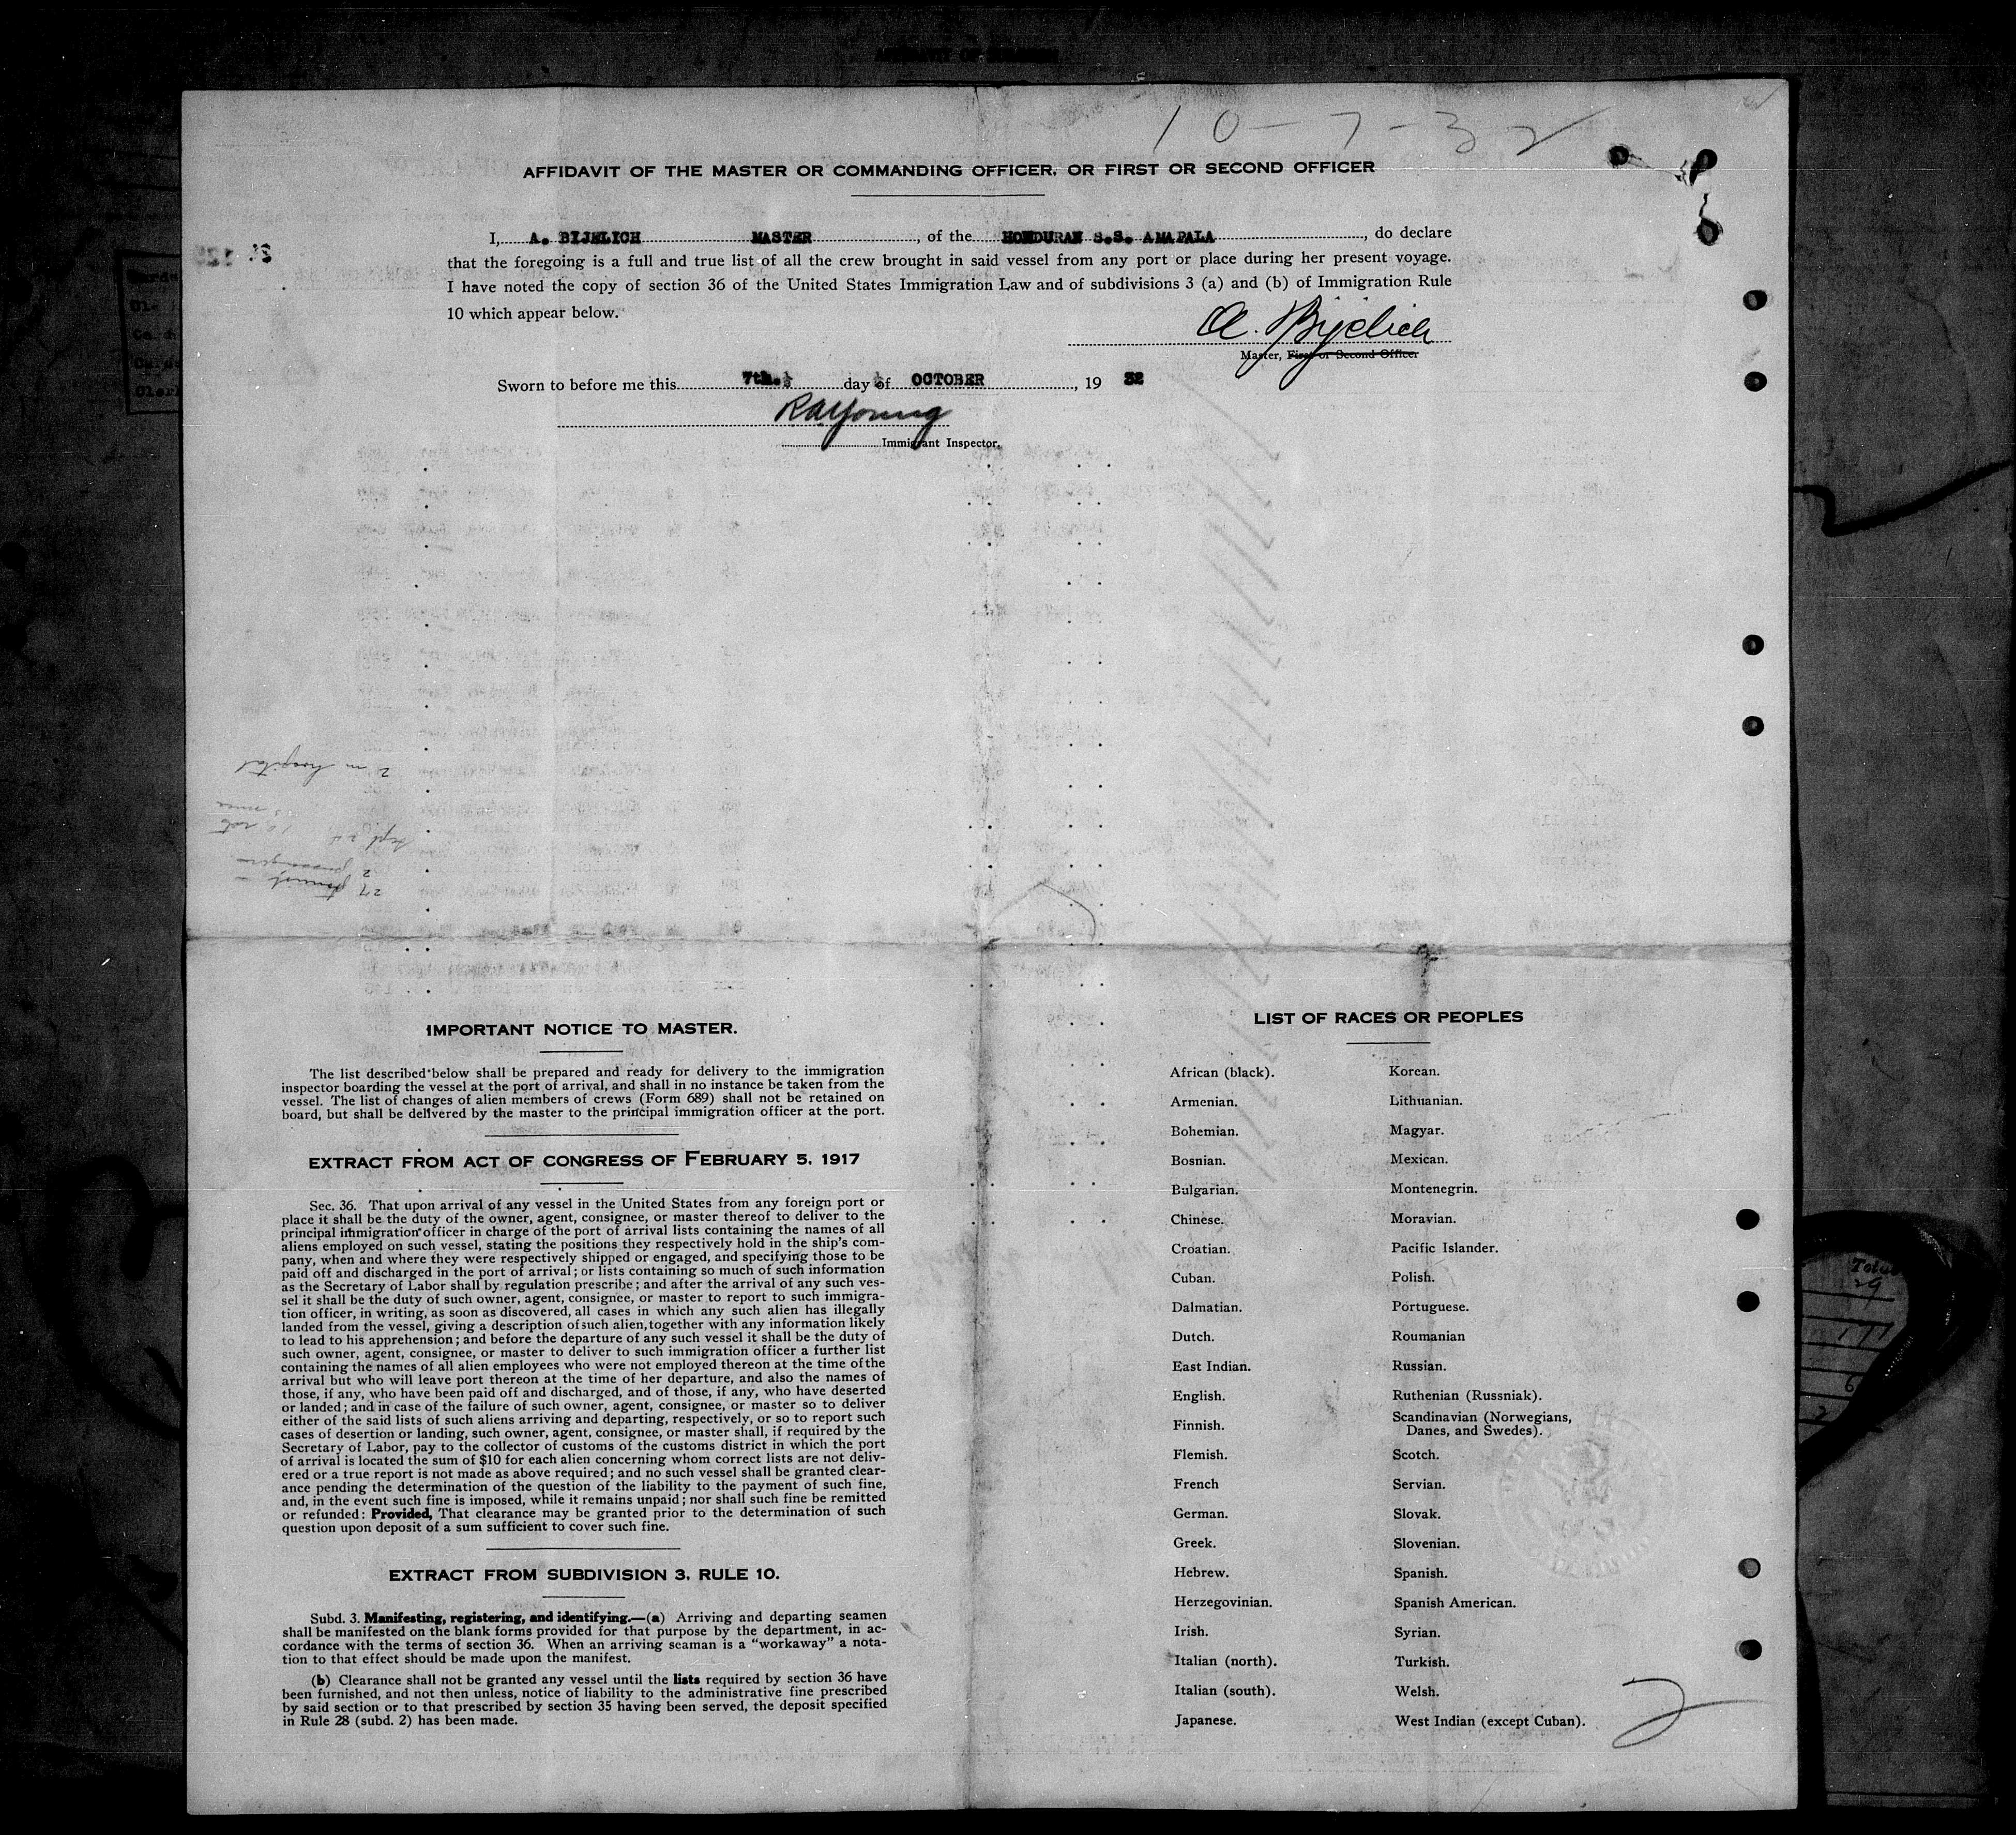 10-7-32
AFFIDAVIT OF THE MASTER OR COMMANDING OFFICER, OR FIRST OR SECOND OFFICER
I, A. BIJELICH MASTER, of the HONDURAN S.S. AMAPALA, do declare
that the foregoing is a full and true list of all the crew brought in said vessel from any port or place during her present voyage.
I have noted the copy of section 36 of the United States Immigration Law and of subdivisions 3 (a) and (b) of Immigration Rule
10 which appear below.
A. Bijelich
Master, First or Second Officer
Sworn to before me this 7th. day of OCTOBER, 19 32
RA Young
Immigrant Inspector.
2 in hospital
27
2 passengers
Sept 24
IMPORTANT NOTICE TO MASTER.
The list described below shall be prepared and ready for delivery to the immigration
inspector boarding the vessel at the port of arrival, and shall in no instance be taken from the
vessel. The list of changes of alien members of crews (Form 689) shall not be retained on
board, but shall be delivered by the master to the principal immigration officer at the port.
EXTRACT FROM ACT OF CONGRESS OF FEBRUARY 5, 1917
Sec. 36. That upon arrival of any vessel in the United States from any foreign port or
place it shall be the duty of the owner, agent, consignee, or master thereof to deliver to the
principal immigration officer in charge of the port of arrival lists containing the names of all
aliens employed on such vessel, stating the positions they respectively hold in the ship's com-
pany, when and where they were respectively shipped or engaged, and specifying those to be
paid off and discharged in the port of arrival; or lists containing so much of such information
as the Secretary of Labor shall by regulation prescribe; and after the arrival of any such ves-
sel it shall be the duty of such owner, agent, consignee, or master to report to such immigra-
tion officer, in writing, as soon as discovered, all cases in which any such alien has illegally
landed from the vessel, giving a description of such alien, together with any information likely
to lead to his apprehension; and before the departure of any such vessel it shall be the duty of
such owner, agent, consignee, or master to deliver to such immigration officer a further list
containing the names of all alien employees who were not employed thereon at the time of the
arrival but who will leave port thereon at the time of her departure, and also the names of
those, if any, who have been paid off and discharged, and of those, if any, who have deserted
or landed; and in case of the failure of such owner, agent, consignee, or master so to deliver
either of the said lists of such aliens arriving and departing, respectively, or so to report such
cases of desertion or landing, such owner, agent, consignee, or master shall, if required by the
Secretary of Labor, pay to the collector of customs of the customs district in which the port
of arrival is located the sum of $10 for each alien concerning whom correct lists are not deliv-
ered or a true report is not made as above required; and no such vessel shall be granted clear-
ance pending the determination of the question of the liability to the payment of such fine,
and, in the event such fine is imposed, while it remains unpaid; nor shall such fine be remitted
or refunded: Provided, That clearance may be granted prior to the determination of such
question upon deposit of a sum sufficient to cover such fine.
EXTRACT FROM SUBDIVISION 3, RULE 10.
Subd. 3. Manifesting, registering, and identifying.—(a) Arriving and departing seamen
shall be manifested on the blank forms provided for that purpose by the department, in ac-
cordance with the terms of section 36. When an arriving seaman is a "workaway" a nota-
tion to that effect should be made upon the manifest.
(b) Clearance shall not be granted any vessel until the lists required by section 36 have
been furnished, and not then unless, notice of liability to the administrative fine prescribed
by said section or to that prescribed by section 35 having been served, the deposit specified
in Rule 28 (subd. 2) has been made.
LIST OF RACES OR PEOPLES
African (black).
Armenian.
Bohemian.
Bosnian.
Bulgarian.
Chinese.
Croatian.
Cuban.
Dalmatian.
Dutch.
East Indian.
English.
Finnish.
Flemish.
French
German.
Greek.
Hebrew.
Herzegovinian.
Irish.
Italian (north).
Italian (south).
Japanese.
Korean.
Lithuanian.
Magyar.
Mexican.
Montenegrin.
Moravian.
Pacific Islander.
Polish.
Portuguese.
Roumanian
Russian.
Ruthenian (Russniak).
Scandinavian (Norwegians,
Danes, and Swedes).
Scotch.
Servian.
Slovak.
Slovenian.
Spanish.
Spanish American.
Syrian.
Turkish.
Welsh.
West Indian (except Cuban).
2